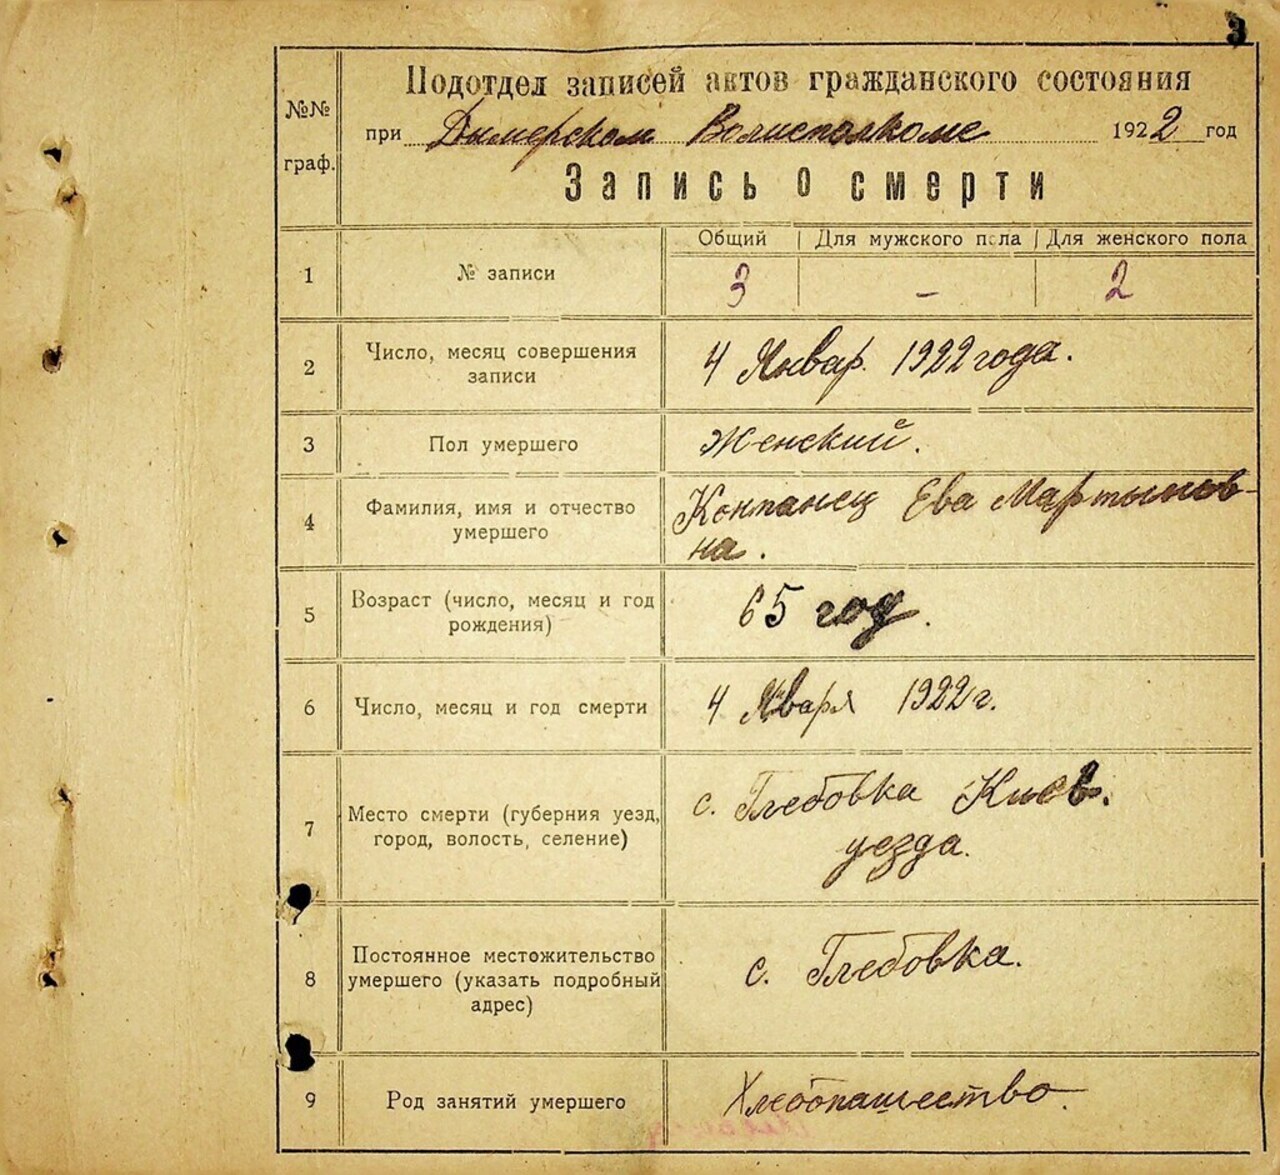 3
№№ граф.
Подотдел записей актов гражданского состояния
при Дымерском Волисполкоме 1922 год
Запись о смерти
Общий Для мужского пола Для женского пола
1 № записи 3 - 2
2 Число, месяц совершения записи 4 Январ. 1922 года.
3 Пол умершего Женский.
4 Фамилия, имя и отчество умершего Компанец Ева Мартынов-
на.
5 Возраст (число, месяц и год рождения) 65 год.
6 Число, месяц и год смерти 4 Января 1922 г.
7 Место смерти (губерния уезд, город, волость, селение) с. Глебовка Киев.
уезда.
8 Постоянное местожительство умершего (указать подробный адрес) с. Глебовка.
9 Род занятий умершего Хлебопашество.